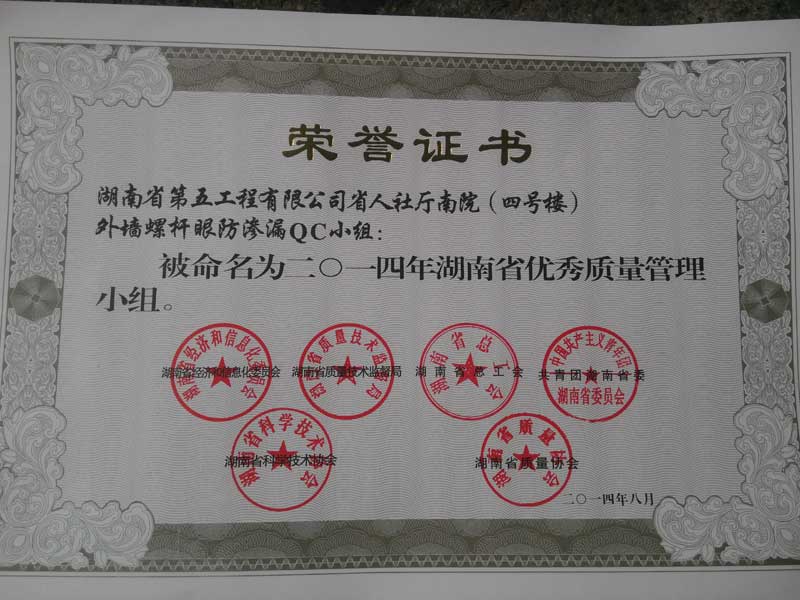 荣誉证书
湖南省第五工程有限公司省人社厅南院（四号楼）
外墙螺杆眼防渗漏QC小组：
被命名为二〇一四年湖南省优秀质量管理
小组。
湖南省经济和信息化委员会
湖南省经济和信息化委员会
湖南省质量技术监督局
湖南省质量技术监督局
湖南省总工会
湖南省总工会
中国共产主义青年团
共青团湖南省委
湖南省委员会
湖南省科学技术协会
湖南省科学技术协会
湖南省质量协会
湖南省质量协会
二〇一四年八月